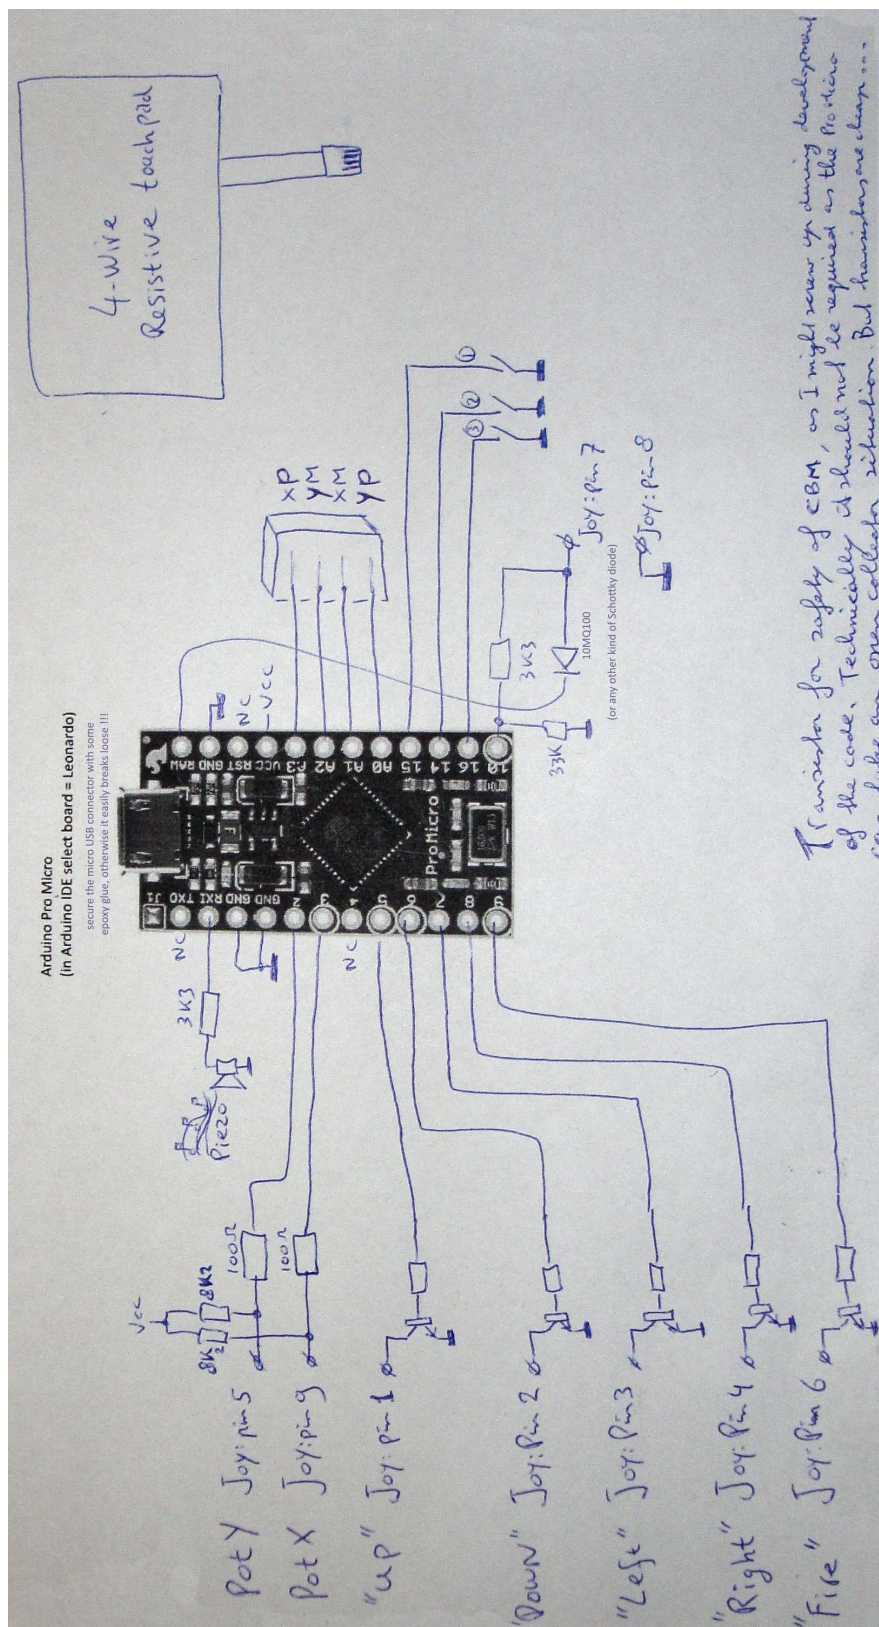 Arduino Pro Micro
(in Arduino IDE select board = Leonardo)
secure the micro USB connector with some
epoxy glue, otherwise it easily breaks loose !!!
4-wire
Resistive touchpad
XP
YM
XM
YP
NC
VCC
NC
3K3
Piezo
NC
J1
TXO
RXI
GND
GND
2
3
4
5
6
7
8
9
RAW
GND
RST
VCC
A3
A2
A1
A0
15
14
16
10
ProMicro
1
2
3
3K3
33K
10MQ100
(or any other kind of Schottky diode)
Joy:pin7
Joy:pin8
Vcc
8K2
8K2
100Ω
100Ω
Pot Y Joy:pin5
Pot X Joy:pin9
"up" Joy:pin1
"Down" Joy:Pin 2
"Left" Joy:Pin3
"Right" Joy:Pin4
"Fire" Joy:Pin 6
Transistor for safety of CBM, as I might screw up during development
of the code. Technically it should not be required as the Pro Micro
open collector situation. But transistors are cheap...